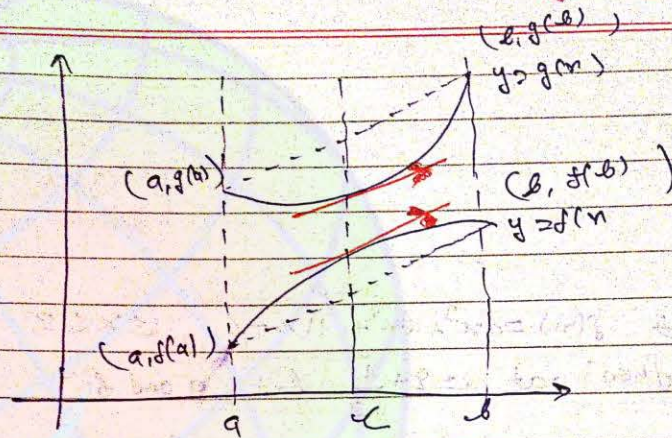 (b, g(b)
y = g(n)
(a, g(a)
(b, f(b)
y = f(n
(a, f(a))
a c b